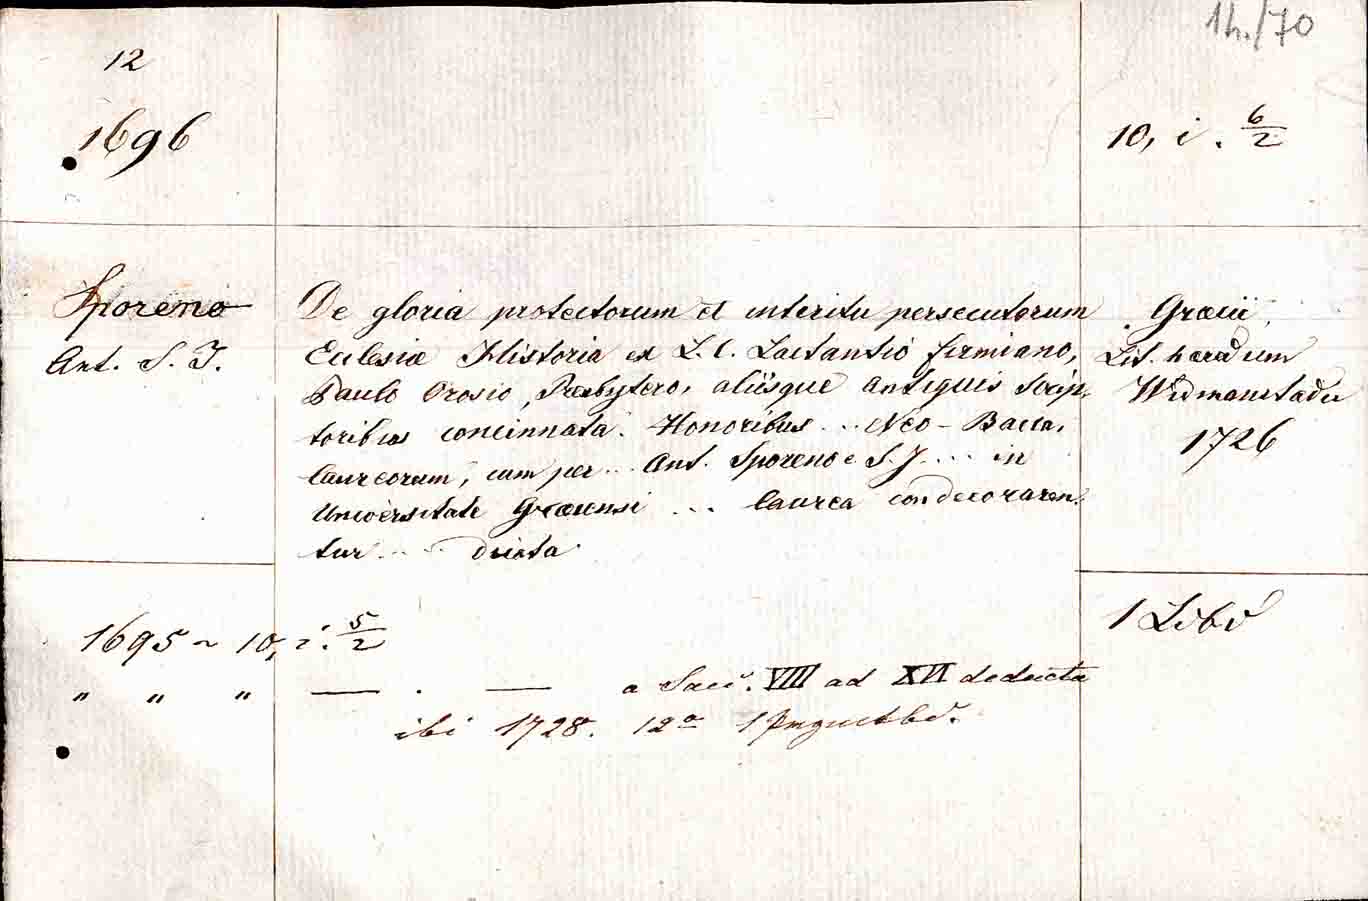 1h./70
12
1696
10, i. 6/2
Sporeno
Ant. S. J.
De gloria protectorum et interitu persecutorum
Eclesiæ Historia ex L. C. Lactantio firmiano,
Paulo Orosio, Presbytero, aliisque antiquis Scrip-
toribus concinnata. Honoribus ... Neo-Bacca-
laureorum, cum per ... Ant. Sporeno e S. J. .... in
Universitate Græcensi ... laurea condecoraren-
tur .... dicata
Græcii,
Lit. hæredum
Widmanstadii
1726
1695 ~ 10, i. 5/2
1 Lvbd
" " " — . — a Sæc. VIII ad XVI deducta
ibi 1728. 12º 1